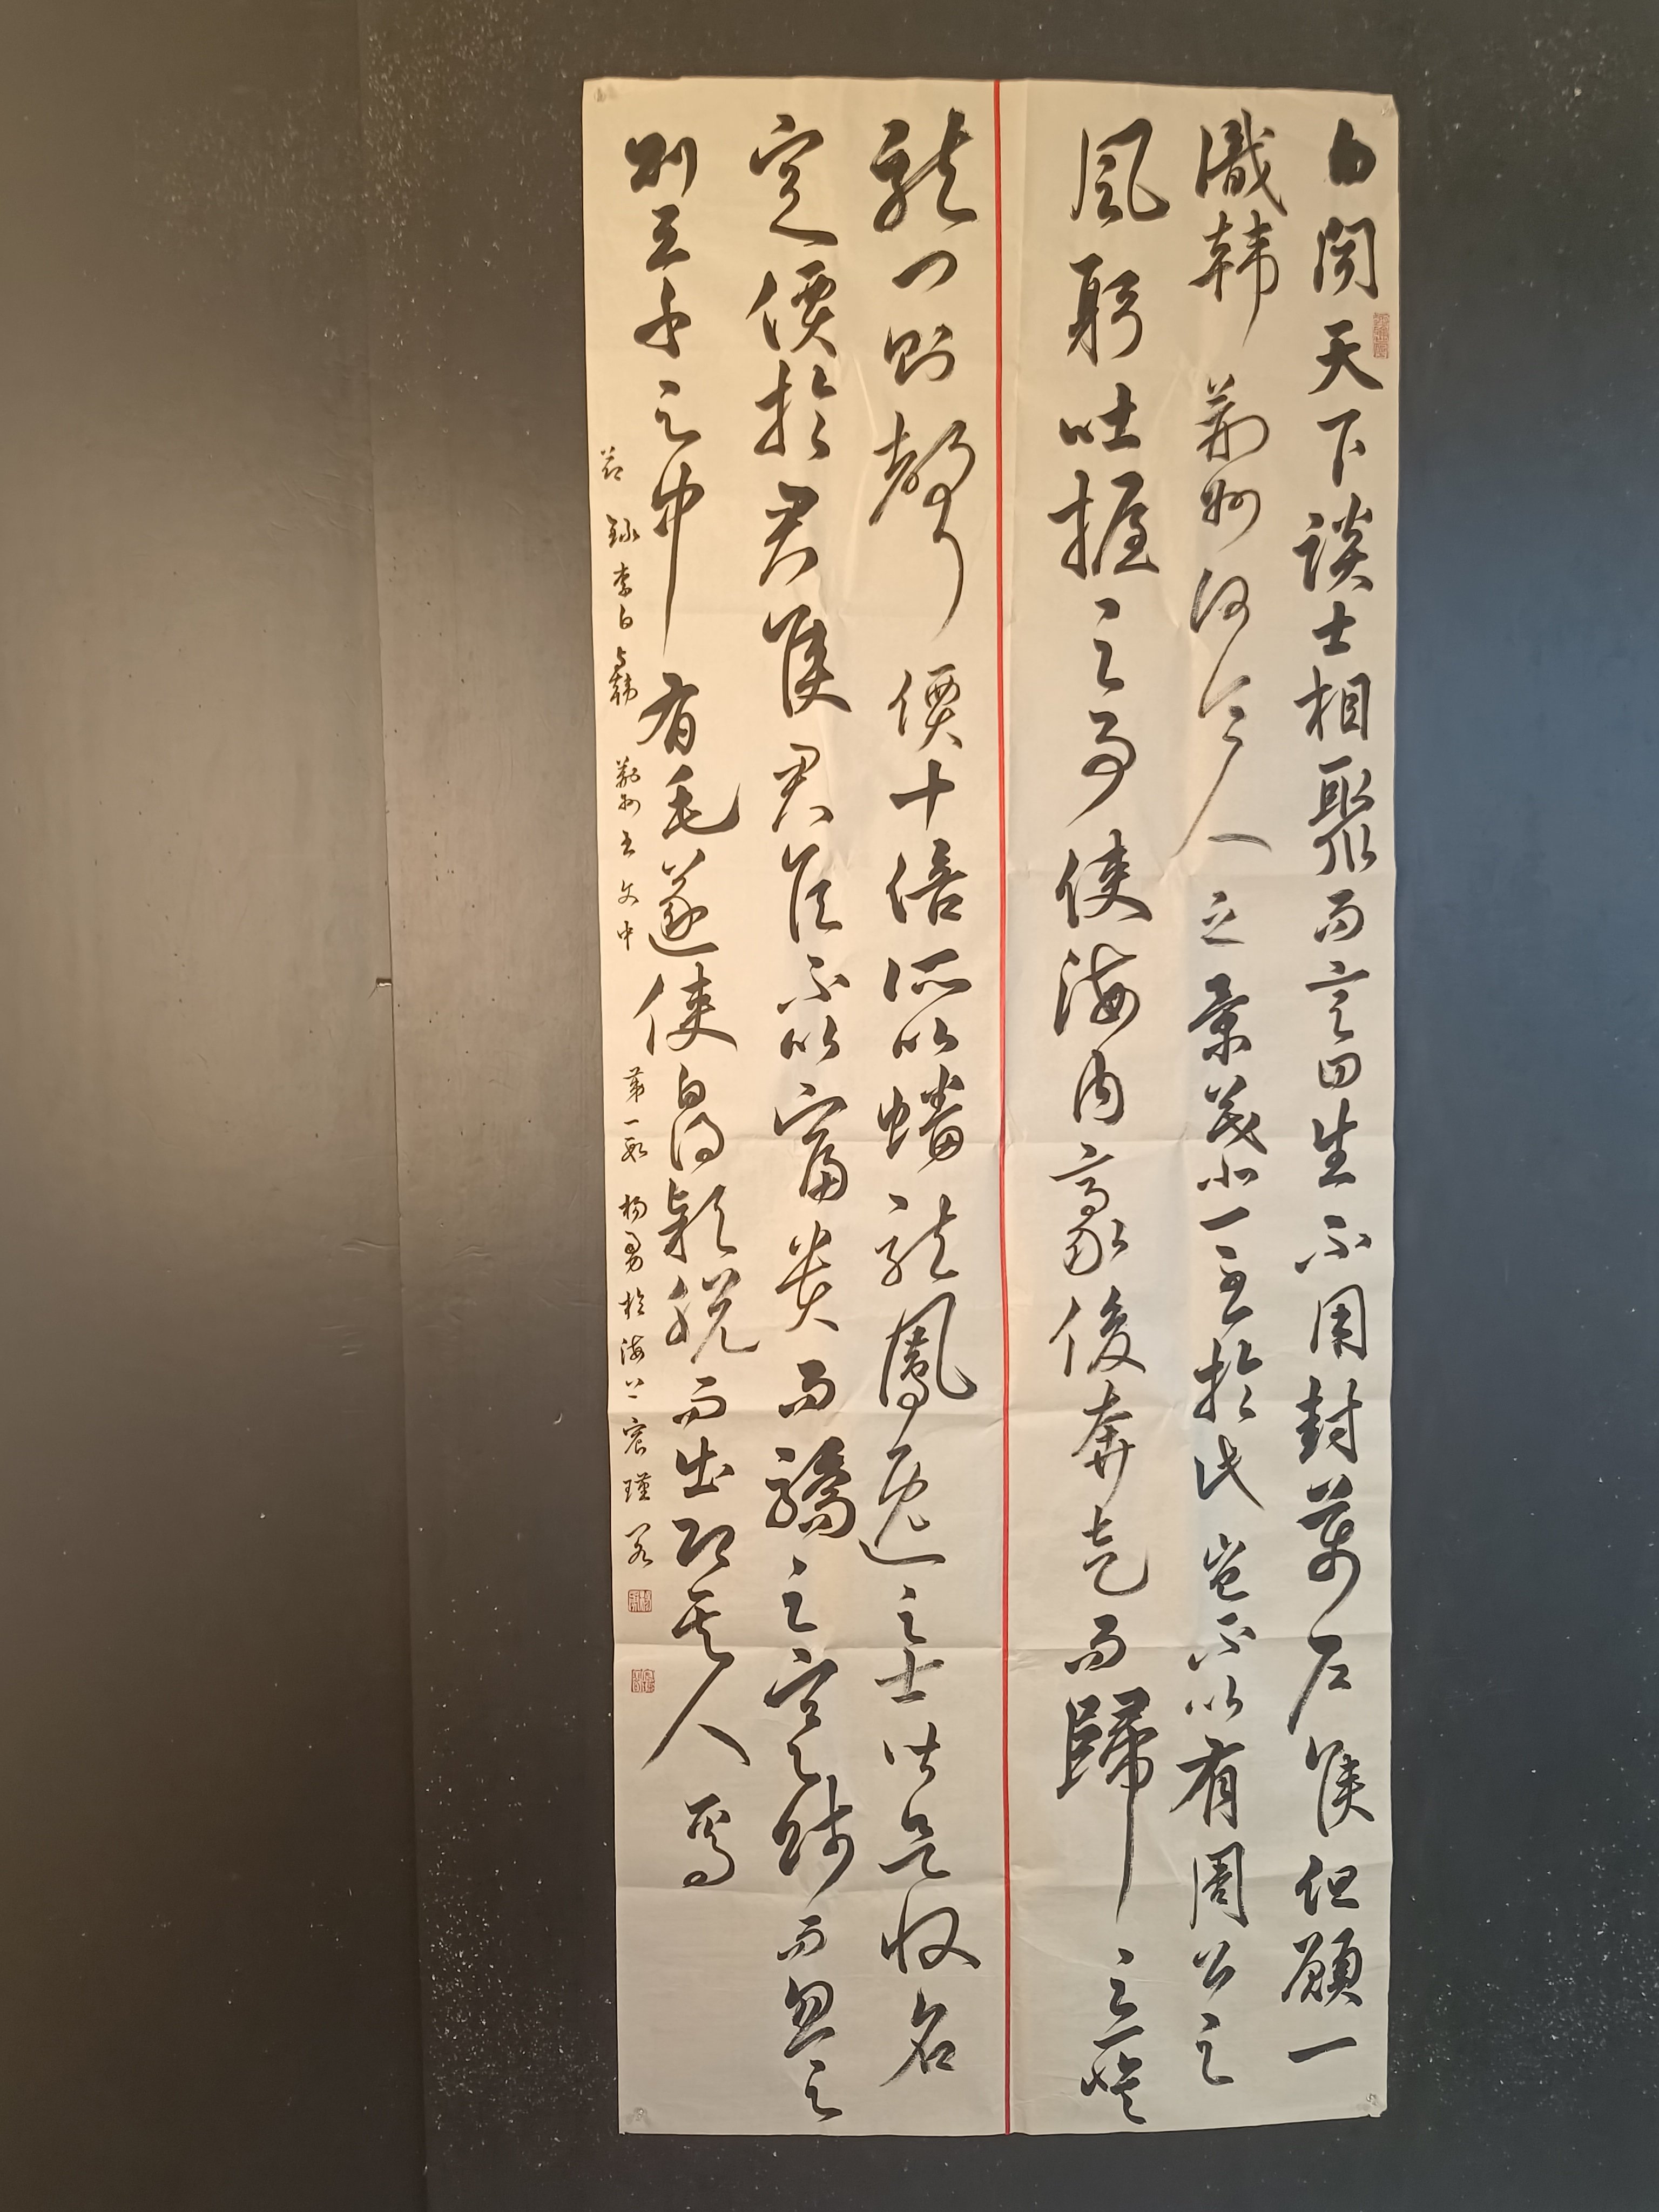 白聞天下談士相聚而言曰生不用封萬戶侯但願一
識韓荊州何令人之景慕一至於此豈不以有周公之
風躬吐握之事使海內豪俊奔走而歸之一登
龍門則聲價十倍所以蟠龍鳳逸之士皆是收名
定價於君侯君侯不以富貴而驕之寒賤而忽之
則三千之中有毛遂使白得穎脫而出即其人焉
節錄李白与韓荊州書文中第一段楊勇於海上宸瑾